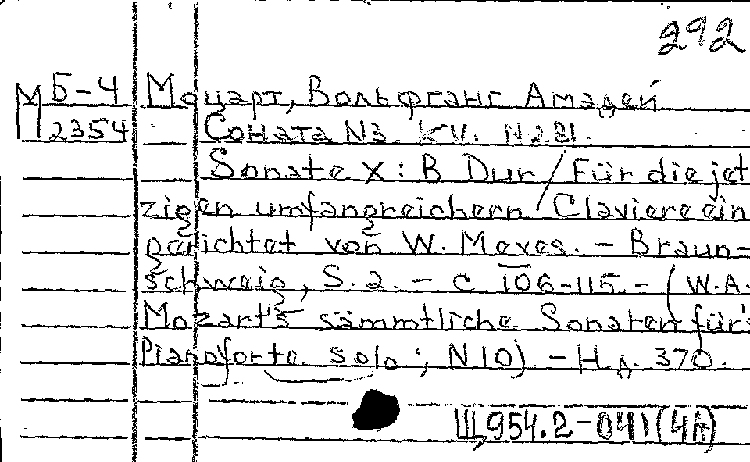 292
М Б-4 Моцарт, Вольфганг Амадей
2354 Соната N3 KV. N281.
Sonate X: B Dur / Für die jet
zigen umfangreichern Claviere ein
gerichtet von W. Meves. - Braun-
schweig, S. a. - c. 106-115 - (W.A.
Mozart's sämmtliche Sonaten für's
Pianoforte solo; N 10) - Н.д. 370.
Щ954.2-041(4А)